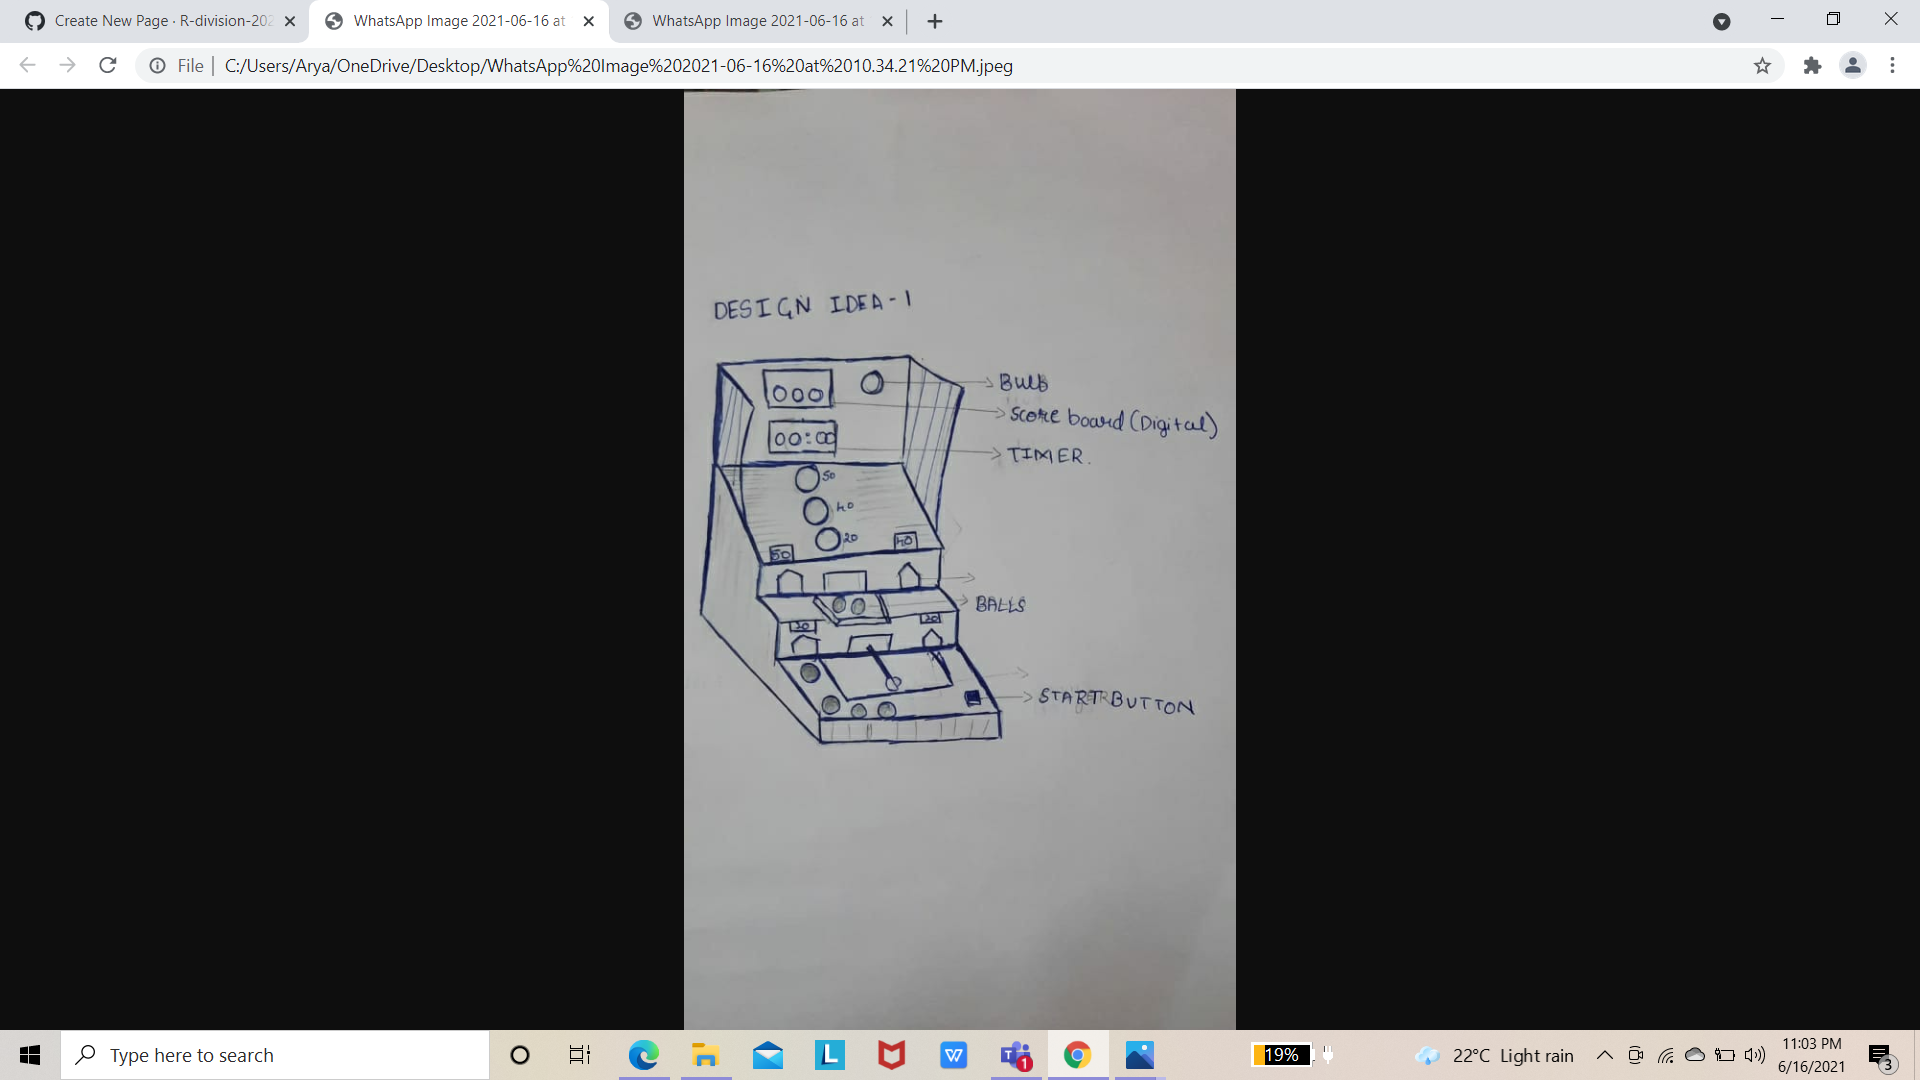 Create New Page · R-division-202
WhatsApp Image 2021-06-16 at
WhatsApp Image 2021-06-16 at
File
C:/Users/Arya/OneDrive/Desktop/WhatsApp%20Image%202021-06-16%20at%2010.34.21%20PM.jpeg
DESIGN IDEA-1
000
Bulb
Score board (Digital)
00:00
TIMER.
50
40
20
50
40
BALLS
20
20
START BUTTON
Type here to search
L
W
T
1
19%
22°C Light rain
11:03 PM
6/16/2021
3